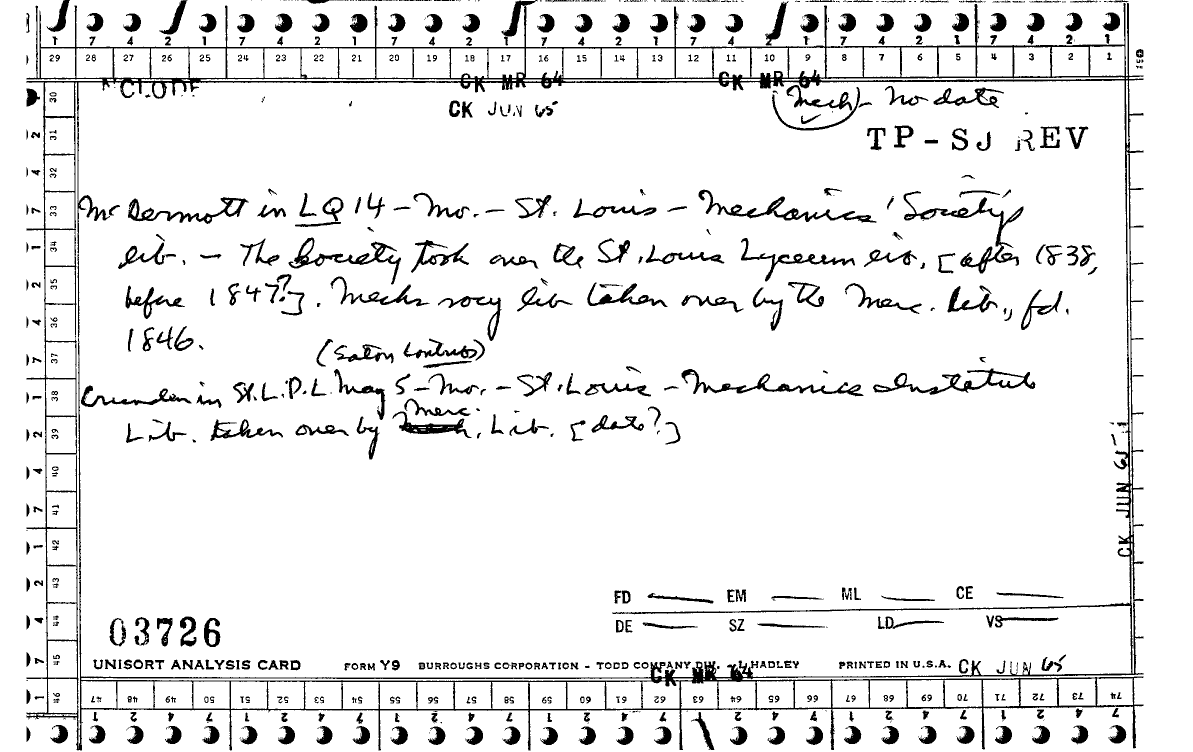 1 7 4 2 1 7 4 2 1 7 4 2 1 7 4 2 1 7 4 2 1 7 4 2 1 7 4 2 1
29 28 27 26 25 24 23 22 21 20 19 18 17 16 15 14 13 12 11 10 9 8 7 6 5 4 3 2 1
CK MR 64 CK MR 64
CK JUN 65
(Mech) - No date
TP-SJ REV
McDermott in LQ 14 - Mo. - St. Louis - Mechanics' Society's
lib. - The Society took over the St. Louis Lyceum lib. [after 1838,
before 1847?]. Mechs socy lib taken over by the Merc. Lib., fd.
1846.
(Eaton Contrib)
Crunden in St.L.P.L. May 5 - Mo. - St. Louis - Mechanics Institute
Merc.
Lib. taken over by Lib. [date?]
CK JUN 65
FD EM ML CE
DE SZ LD VS
03726
UNISORT ANALYSIS CARD FORM Y9 BURROUGHS CORPORATION - TODD COMPANY DIV. - L HADLEY PRINTED IN U.S.A. CK JUN 65
CK MR 64
47 48 49 50 51 52 53 54 55 56 57 58 59 60 61 62 63 64 65 66 67 68 69 70 71 72 73 74